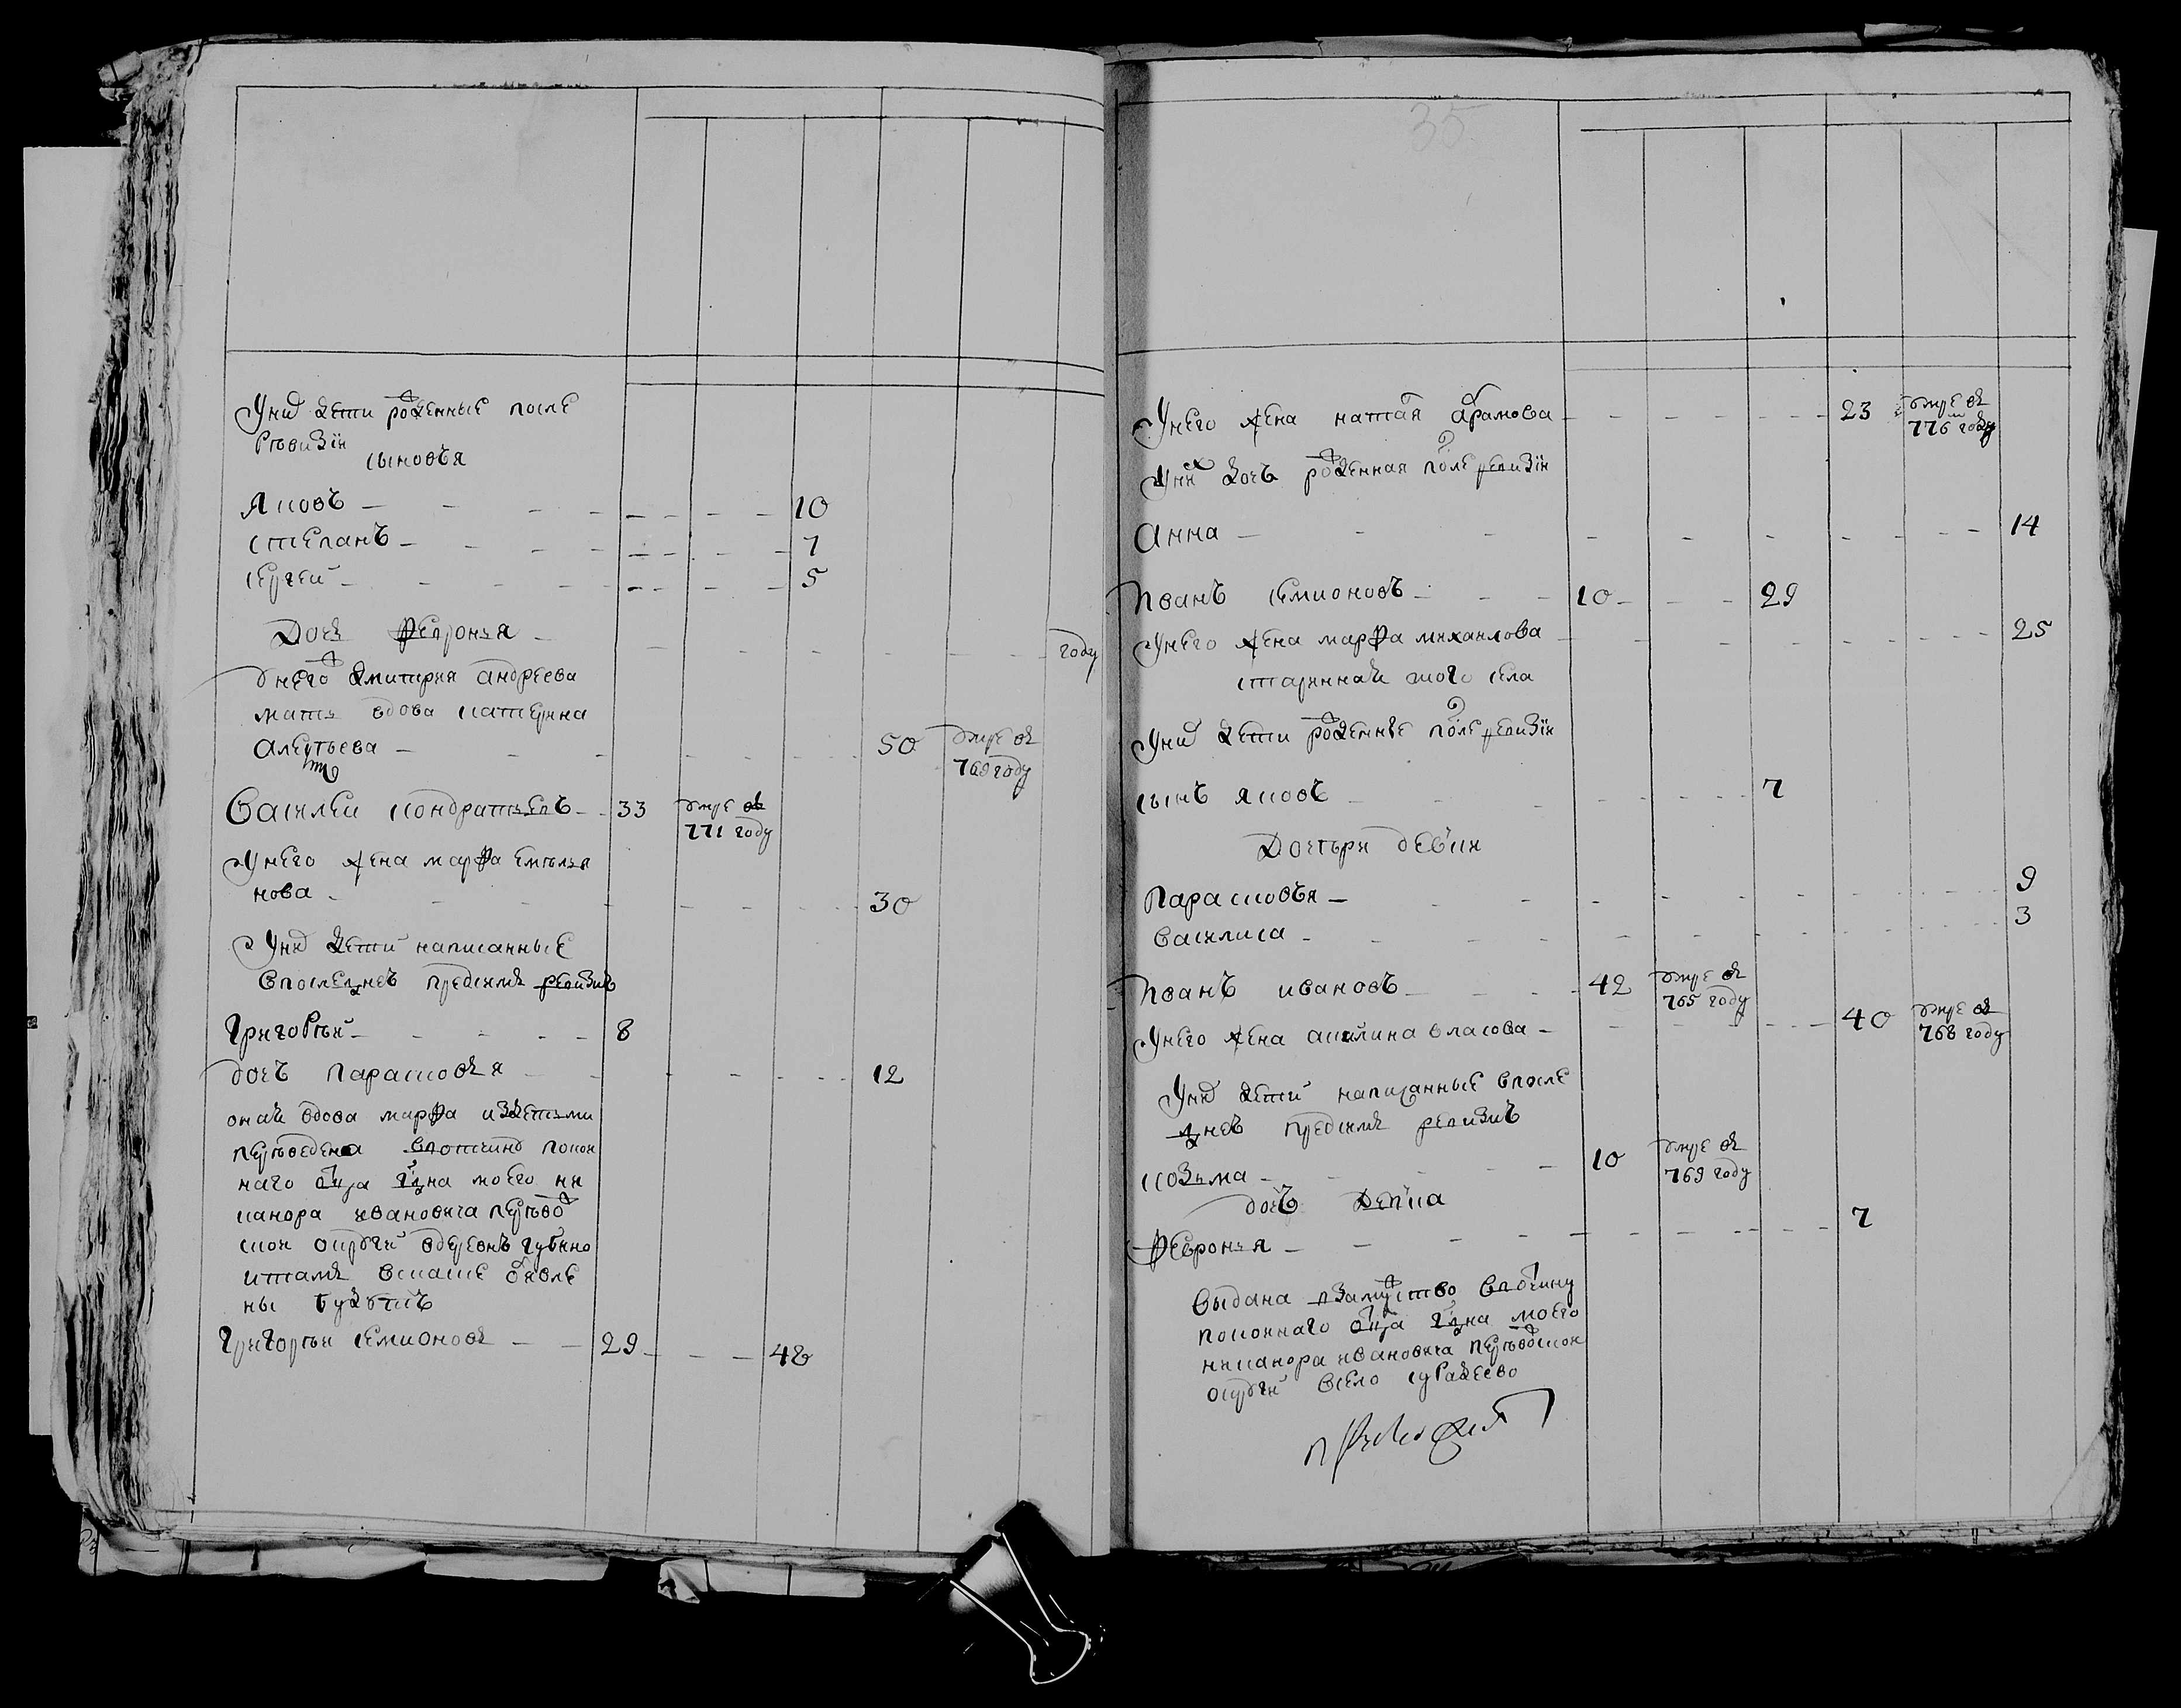 У них дети рожденные после
ревизіи
сыновья
Яковъ — 10
степанъ — 7
сергей — 5
Дочь Февронья — году
У него Дмитрия андреева
мать вдова катерина
Алектьева — 50 умре въ
769 году
Василей кондратьевъ — 33 умре въ
771 году
У него жена марфа емелья
нова — 30
У них дети написанные
впоследней предсимъ ревизиъ
Григореи — 8
дочь парасковья — 12
оная вдова марфа издетьми
переведена вотчину покои
наго отца гдна моего ни
канора ивановича перевод
скои округи вдеревнъ губино
итамъ всказке объявле
ны будутъ
Григореи семионовъ — 29 — 48
35
У него жена наталья абрамова — 23 умре въ
776 году
У них дочь рожденная после ревизіи
Анна — 14
Иванъ семионовъ — 10 — 29
У него жена марфа михаилова — 25
старинная того села
У них дети рожденные после ревизіи
сынъ яковъ — 7
Дочери девки
Парасковья — 9
василиса — 3
Иванъ ивановъ — 42 умре въ
765 году
У него жена акилина власова — 40 умре въ
768 году
У них дети написанные впосле
дней предсимъ ревизиъ
козьма — 10 умре въ
769 году
дочь Девка
Февронья — 7
выдана взамужство вводчину
покоинаго отца гдна моего
никанора ивановича
округи всело